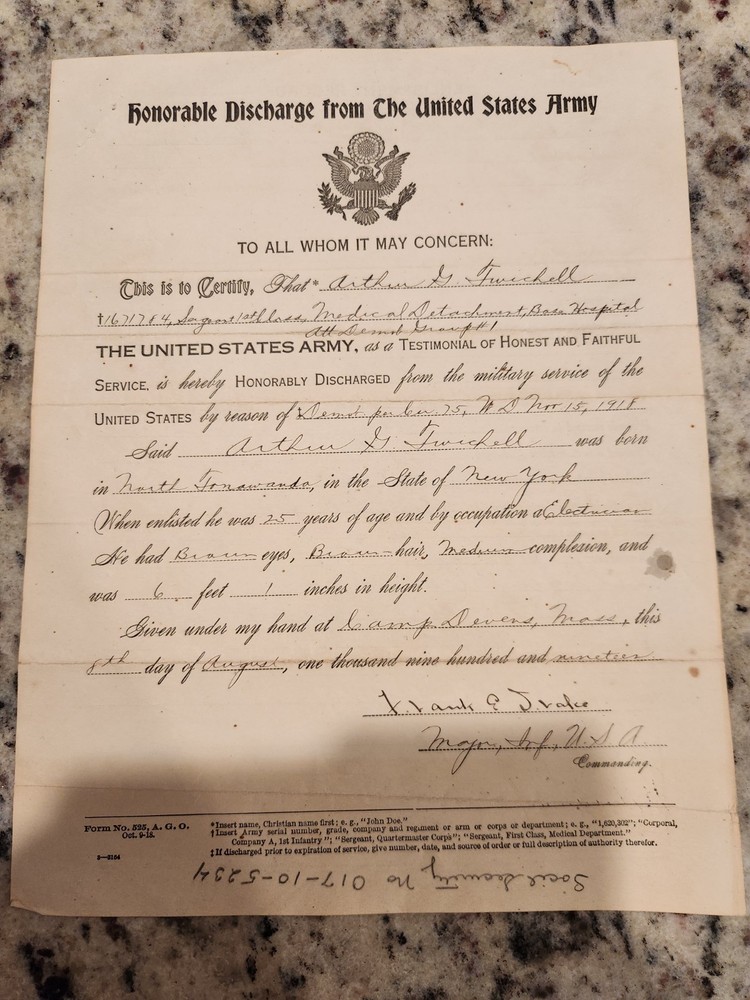 Honorable Discharge from The United States Army
TO ALL WHOM IT MAY CONCERN:
This is to Certify, That* Arthur G. Twichell
†1671784, Sergeant 1st class, Medical Detachment, Base Hospital
Att Demob Group #1
THE UNITED STATES ARMY, as a TESTIMONIAL OF HONEST AND FAITHFUL
SERVICE, is hereby HONORABLY DISCHARGED from the military service of the
UNITED STATES by reason of ‡ Demob per Cir 75, W D Nov 15, 1918
Said Arthur G. Twichell was born
in North Tonawanda, in the State of New York
When enlisted he was 25 years of age and by occupation a Electrician
He had Brown eyes, Brown hair, Medium complexion, and
was 6 feet 1 inches in height.
Given under my hand at Camp Devens, Mass, this
8th day of August, one thousand nine hundred and nineteen
Frank E Drake
Major, Inf, U. S. A.
Commanding.
Form No. 525, A. G. O.
Oct. 9-18.
3—5164
*Insert name, Christian name first; e. g., "John Doe."
†Insert Army serial number, grade, company and regiment or arm or corps or department; e. g., "1,620,302"; "Corporal,
Company A, 1st Infantry"; "Sergeant, Quartermaster Corps"; "Sergeant, First Class, Medical Department."
‡If discharged prior to expiration of service, give number, date, and source of order or full description of authority therefor.
Social Security No 017-10-5234